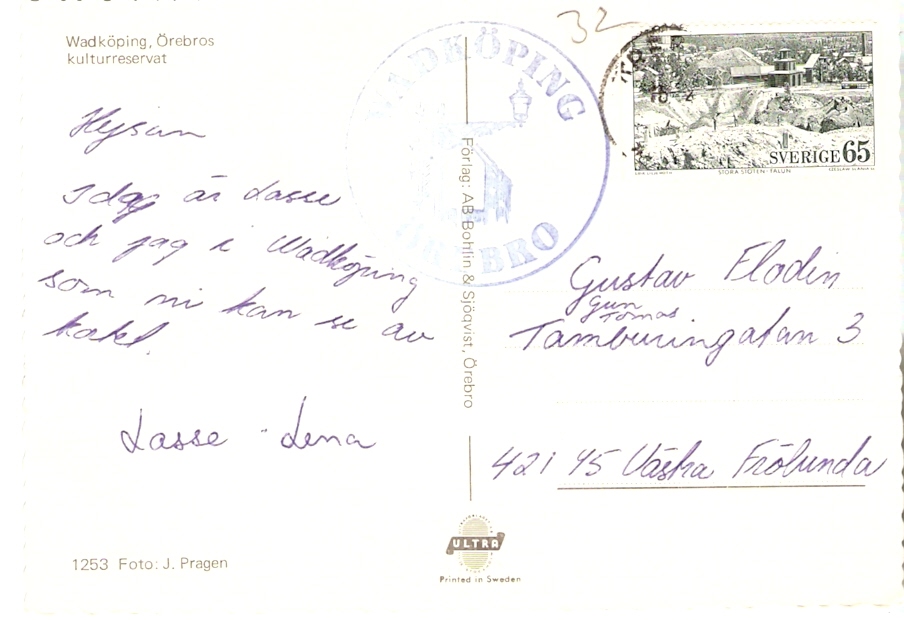 Wadköping, Örebros
kulturreservat
Hejsan
Idag är Lasse
och jag i Wadköping
som ni kan se av
kortet.
Lasse - Lena
1253 Foto: J. Pragen
WADKÖPING
ÖREBRO
Förlag: AB Bohlin & Sjöqvist, Örebro
ULTRA
Printed in Sweden
32
SVERIGE 65
STORA STÖTEN · FALUN
Gustav Flodin
Gun
Tomas
Tamburingatan 3
421 45 Västra Frölunda